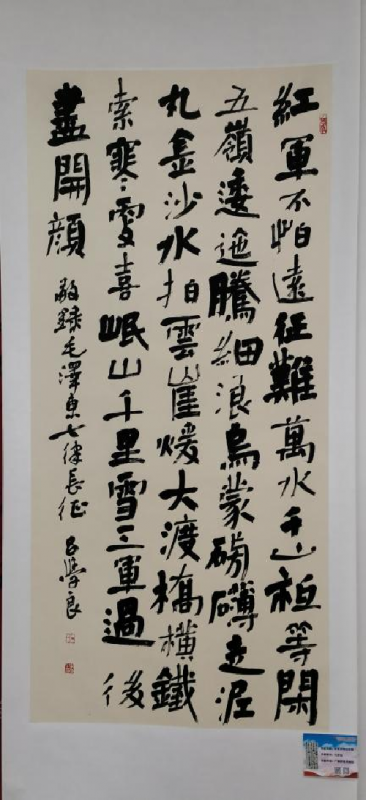 紅軍不怕遠征難萬水千山祗等閑
五嶺逶迤騰細浪烏蒙磅礴走泥
丸金沙水拍雲崖煖大渡橋橫鐵
索寒更喜岷山千里雪三軍過後
盡開顏 敬錄毛澤東七律長征 呂學良